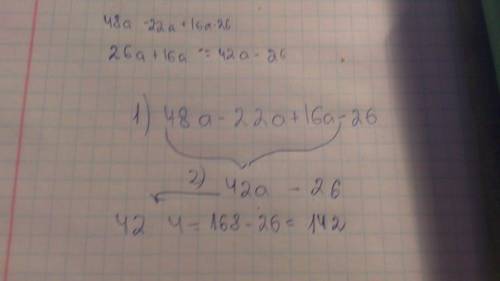 48a - 22a + 16a - 26
26a + 16a = 42a - 26
1) 48a - 22a + 16a - 26
2) 42a - 26
42 4 = 168 - 26 = 142